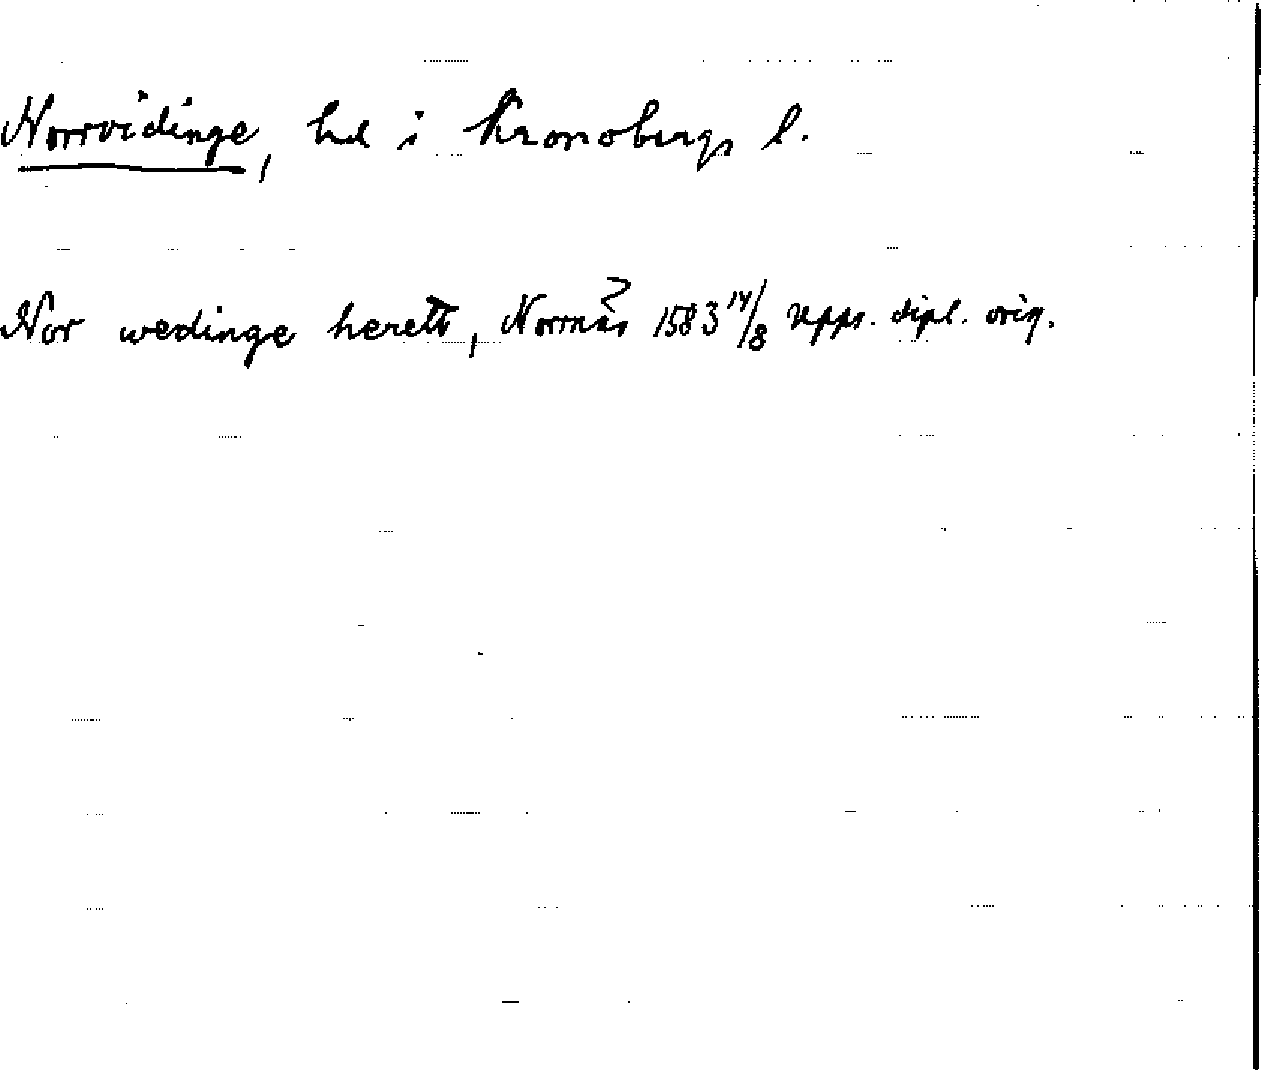 Norrvidinge, hd i Kronobergs l.
Nor wedinge herett, Norrnäs 1583 14/8 Upps. dipl. orig.